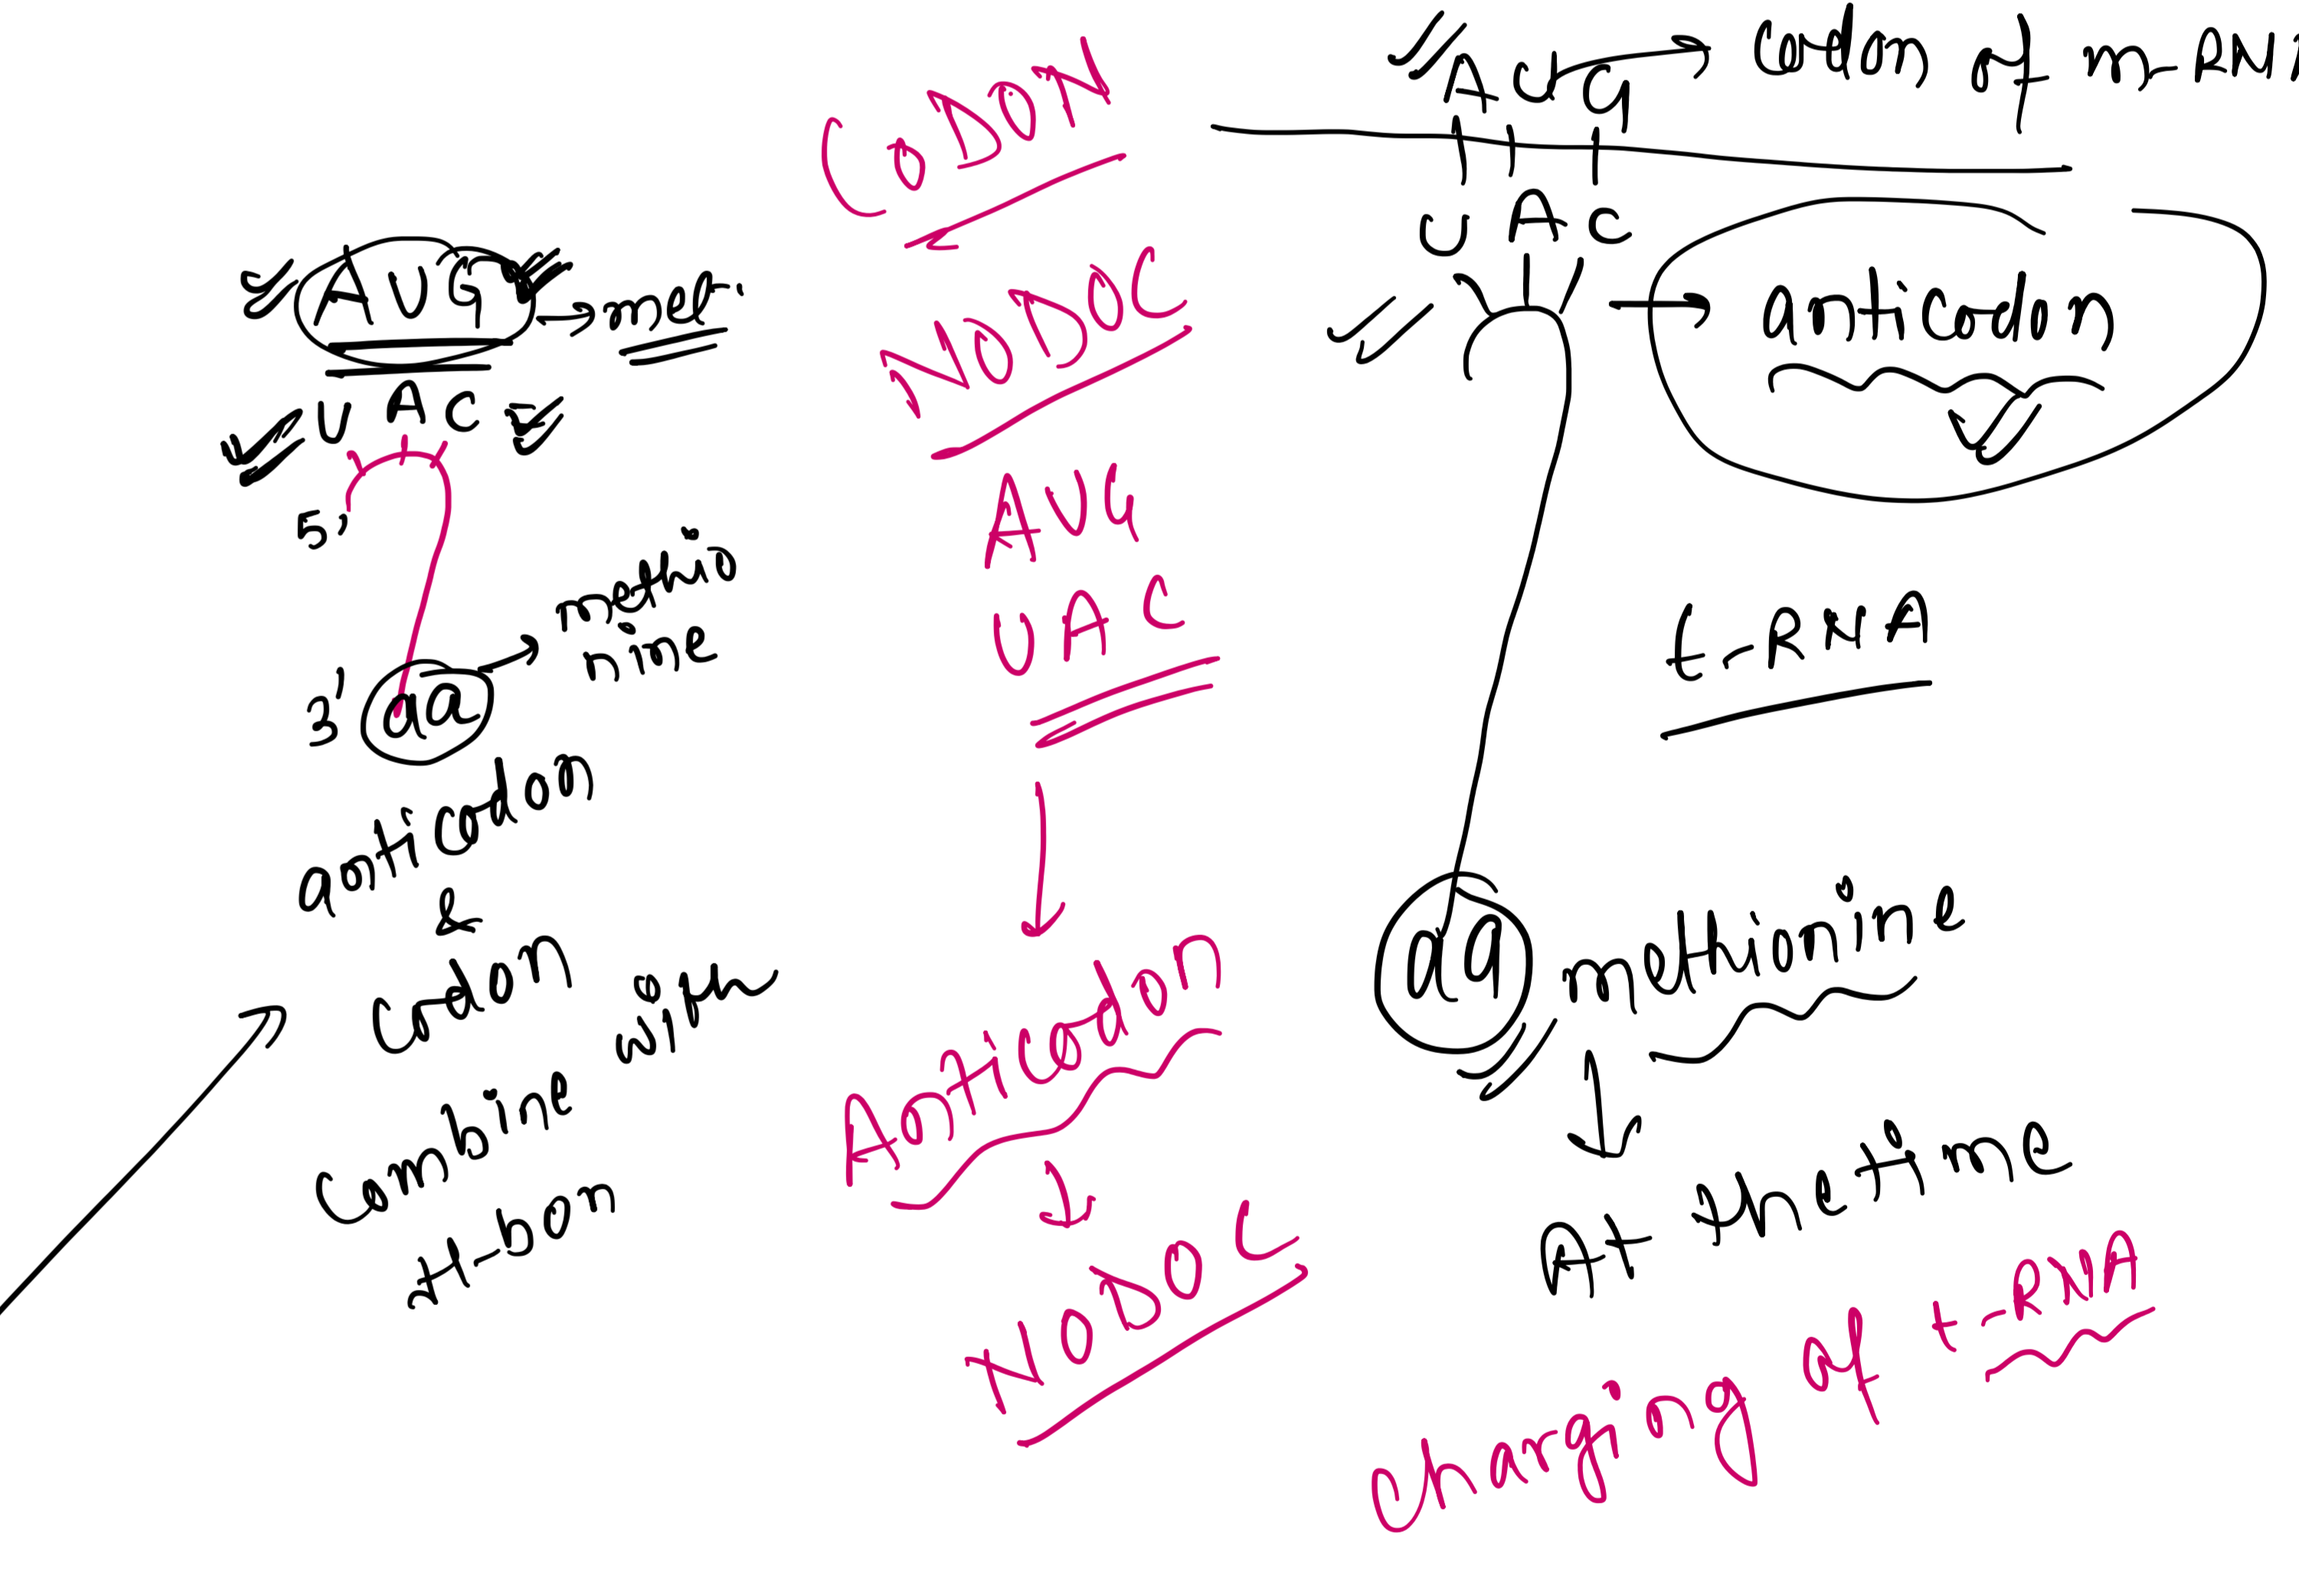 AUG → met.
U A C
5'
methio
nine
3' aa
anticodon
&
Codon
Combine with
H-bon
CODON
NODOC
AUG
UAC
Anticodon
NODOC
AUG → Codon of m-RN
U A C
→ anticodon
t-RNA
aa methionine
At the time
Charging of t-RNA